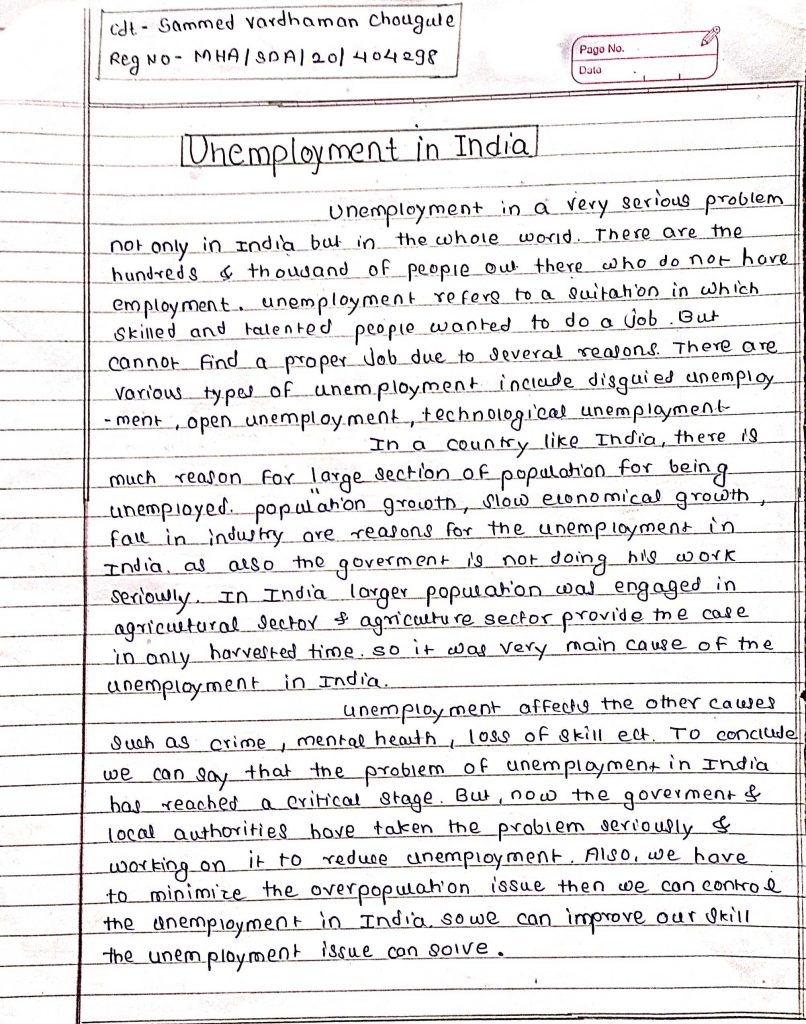 Cdt - Sammed Vardhaman Chougule
Reg No - MHA/SDA/20/404298
Page No.
Date
Unemployment in India
Unemployment in a very serious problem
not only in India but in the whole world. There are the
hundreds & thousand of people out there who do not have
employment. unemployment refers to a suitation in which
skilled and talented people wanted to do a job. But
cannot find a proper Job due to several reasons. There are
various types of unemployment include disguied unemploy
-ment, open unemployment, technological unemployment
In a country like India, there is
much reason for large section of population for being
unemployed. population growth, slow economical growth,
fall in industry are reasons for the unemployment in
India. as also the goverment is not doing his work
seriously. In India larger population was engaged in
agricultural sector & agriculture sector provide the case
in only harvested time. so it was very main cause of the
unemployment in India.
unemployment affects the other causes
such as crime, mental health, loss of skill ect. To conclude
we can say that the problem of unemployment in India
has reached a critical stage. But, now the goverment &
local authorities have taken the problem seriously &
working on it to reduce unemployment. Also, we have
to minimize the overpopulation issue then we can control
the unemployment in India. so we can improve our skill
the unemployment issue can solve.